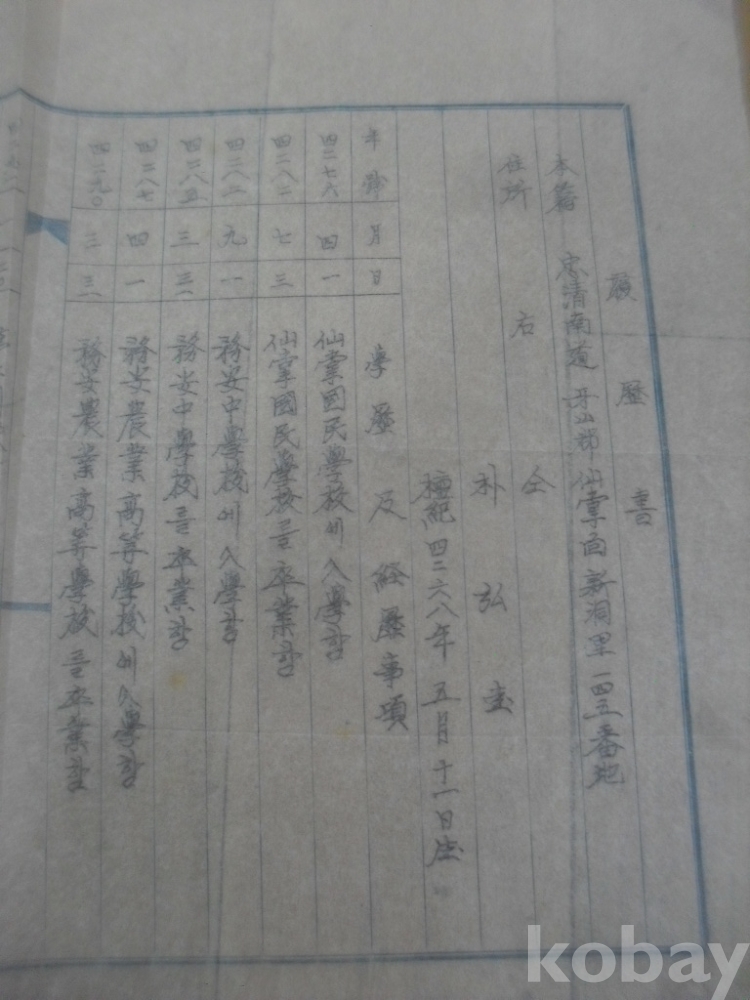 履歷書
本籍 忠清南道 牙山郡 仙掌面 新洞里 一四三番地
住所 右仝
朴弘圭
檀紀 四二六八年 五月 十一日生
年號 月 日 學歷 及 經歷事項
四二七六 四 一 仙掌國民學校에 入學함
四二八二 七 三 仙掌國民學校를 卒業함
四二八二 九 一 務安中學校에 入學함
四二八五 三 三一 務安中學校를 卒業함
四二八七 四 一 務安農業高等學校에 入學함
四二九〇 三 三 務安農業高等學校를 卒業함
kobay